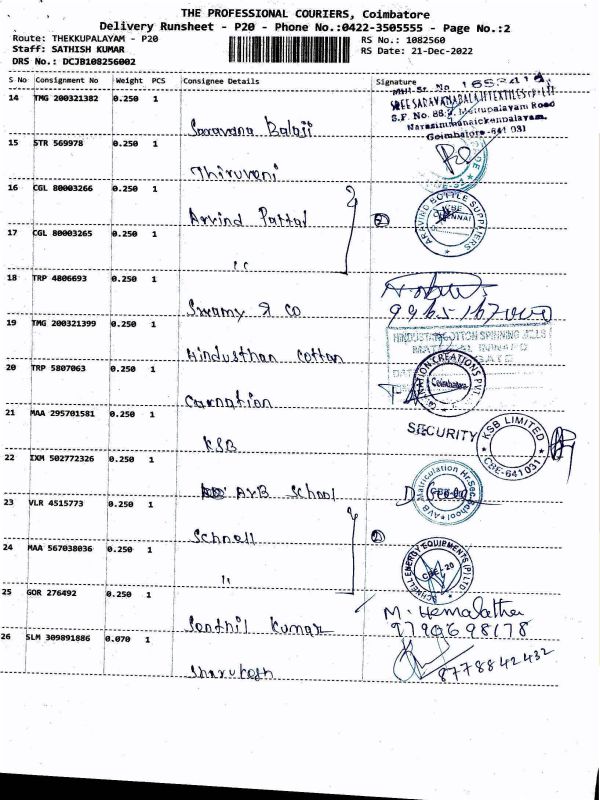 THE PROFESSIONAL COURIERS, Coimbatore
Delivery Runsheet - P20 - Phone No.:0422-3505555 - Page No.:2
Route: THEKKUPALAYAM - P20
RS No.: 1082560
Staff: SATHISH KUMAR
RS Date: 21-Dec-2022
DRS No.: DCJB108256002
S No Consignment No Weight PCS Consignee Details Signature
14 TMG 200321382 0.250 1
SREE SARAVANABALAJI TEXTILES (P) LTD
S.F. No. 88/2, Mettupalayam Road
Narasimmanaickenpalayam,
Coimbatore-641 031
Saravana Balaji
15 STR 569978 0.250 1
Thiruvani
16 CGL 80003266 0.250 1
Arvind Pattal
ARAVIND BOTTLE SUPPLIERS
17 CGL 80003265 0.250 1
"
18 TRP 4806693 0.250 1
Swamy & Co
19 TMG 200321399 0.250 1
HINDUSTAN COTTON SPINNING MILLS
Hindusthan Cotton
20 TRP 5807063 0.250 1
Coimbatore
Carnation
21 MAA 295701581 0.250 1
SECURITY
KSB LIMITED
CBE-641 031
KSB
22 IXM 502772326 0.250 1
AVB School
Matriculation Hr.Sec.School AVB
23 VLR 4515773 0.250 1
Schnell
24 MAA 567038036 0.250 1
SCHNELL ENERGY EQUIPMENTS (P) LTD
CBE-20
"
25 GOR 276492 0.250 1
M. Hemalatha
Senthil Kumar
9790698178
26 SLM 309891886 0.070 1
8778842432